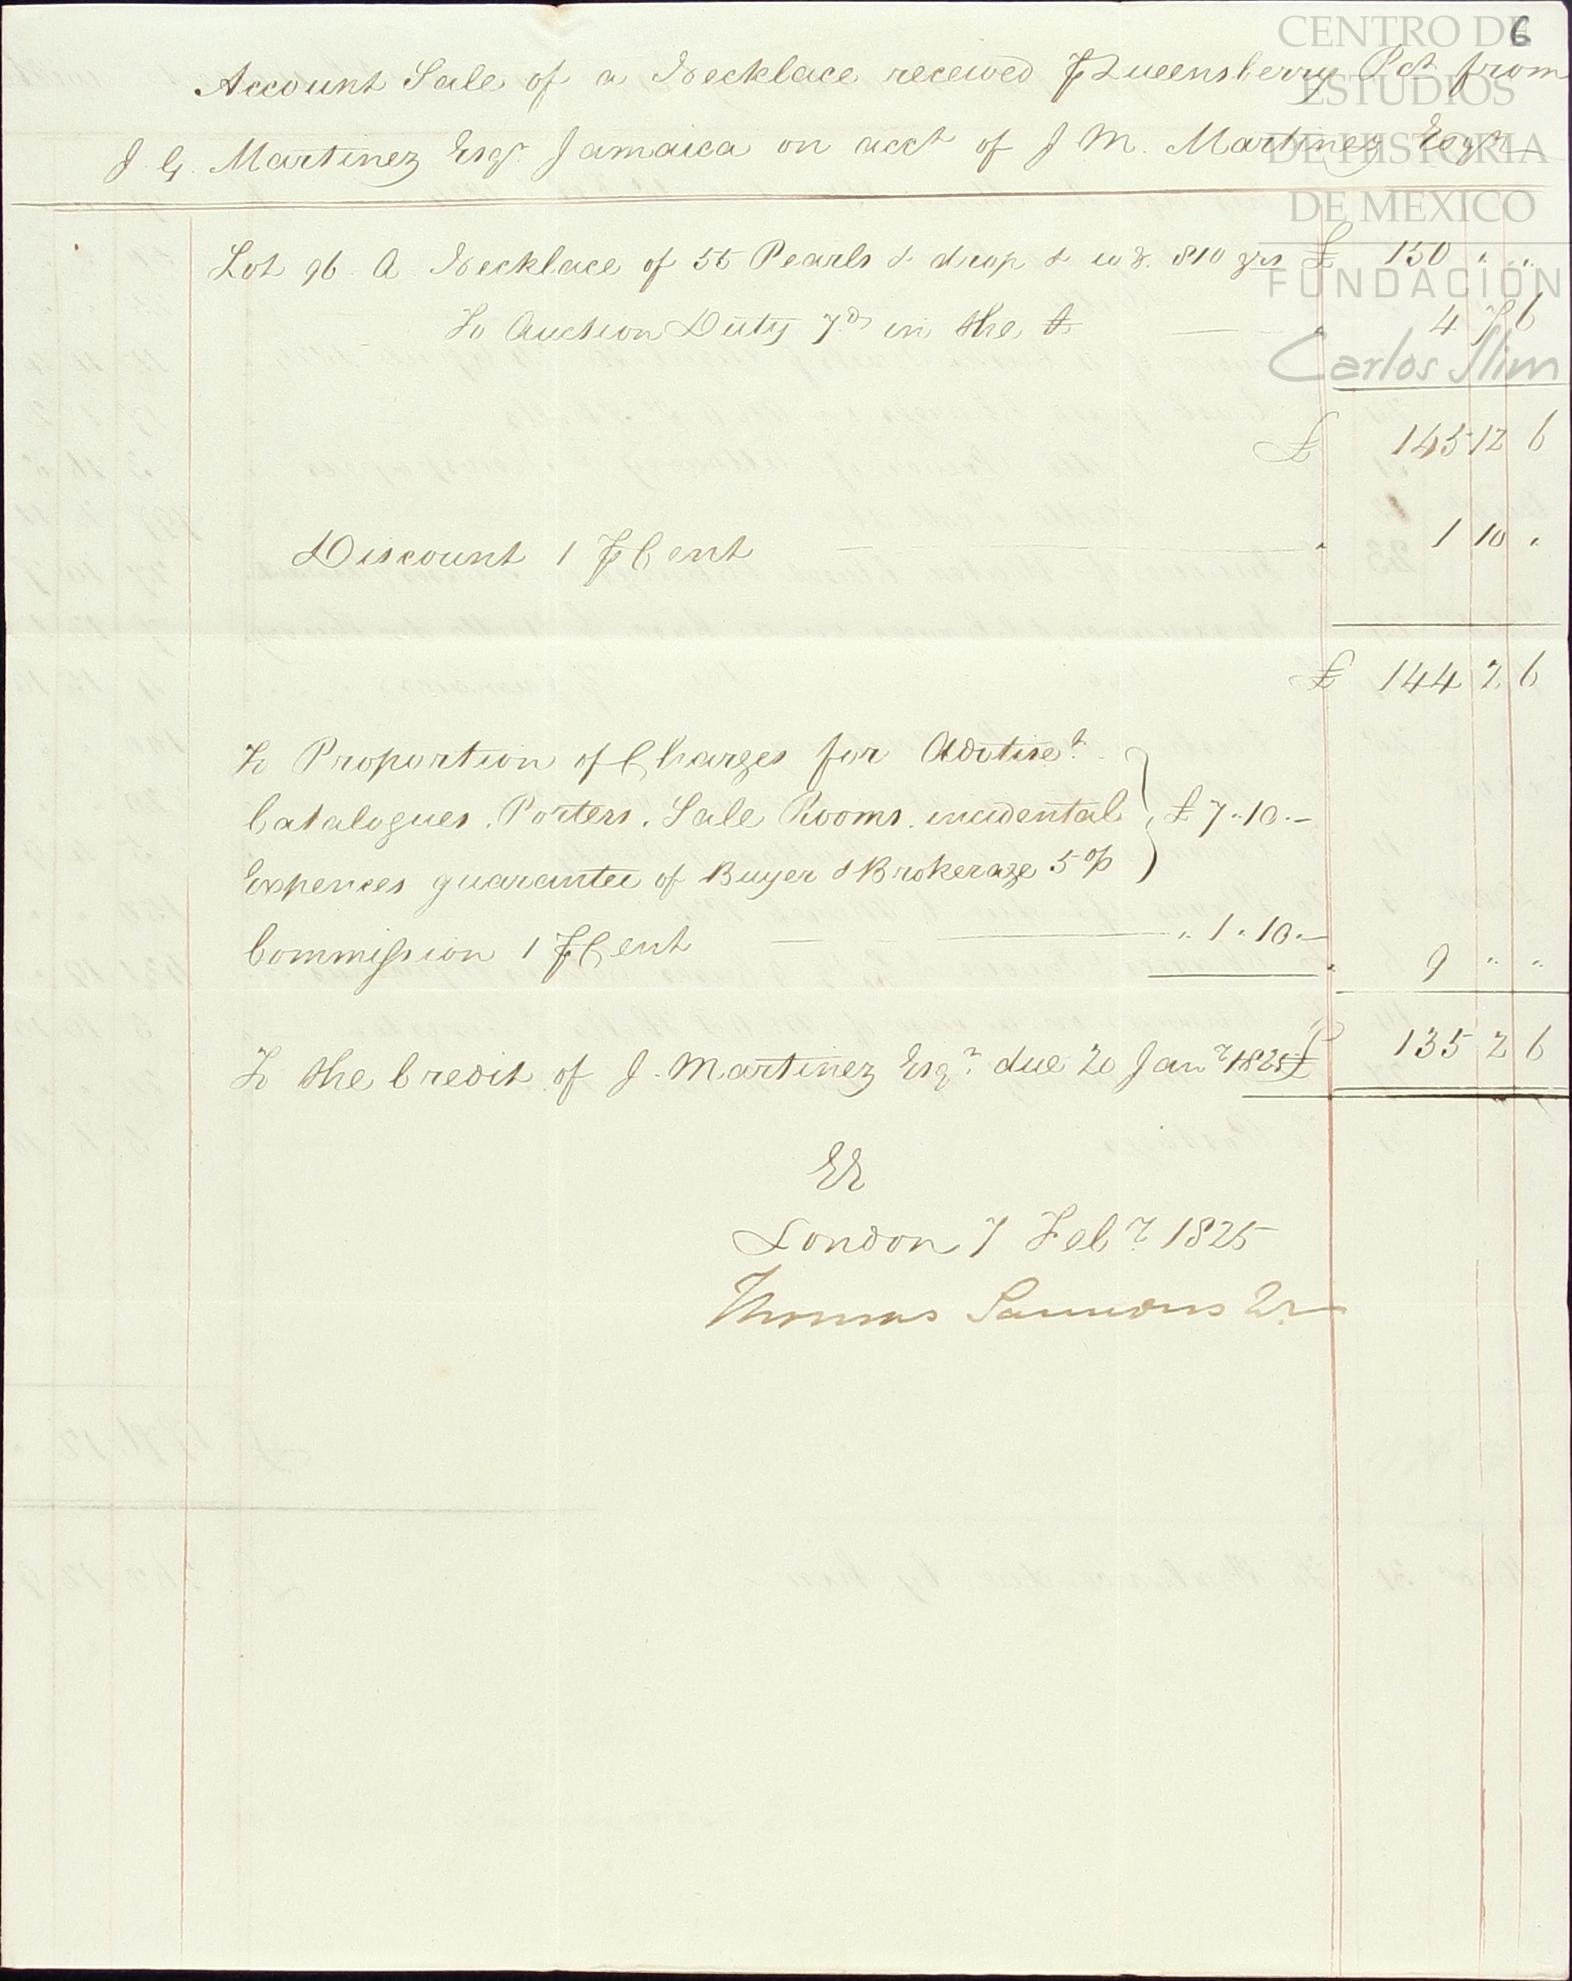 6
CENTRO DE
ESTUDIOS
DE HISTORIA
DE MEXICO
FUNDACIÓN
Carlos Slim
Account Sale of a Necklace received ⅌ Queensberry Pct from
J. G. Martinez Esqr. Jamaica on acct of J M. Martinez Esqr
Lot 96. A Necklace of 55 Pearls & drop & wg. 810 grs £ 150 " "
To Auction Duty 7d in the £ " 4 7 6
£ 145 12 6
Discount 1 ⅌ Cent " 1 10 "
£ 144 2 6
To Proportion of Charges for Advtiset.
Catalogues, Porters, Sale Rooms, incidental £ 7 " 10 " –
Expences guarantee of Buyer & Brokerage 5 %
Commission 1 ⅌ Cent " 1 " 10 " –
" 9 " "
To the Credit of J. Martinez Esqr. due 20 Janr 1825 £ 135 2 6
EE
London 7 Febr. 1825
Thomas